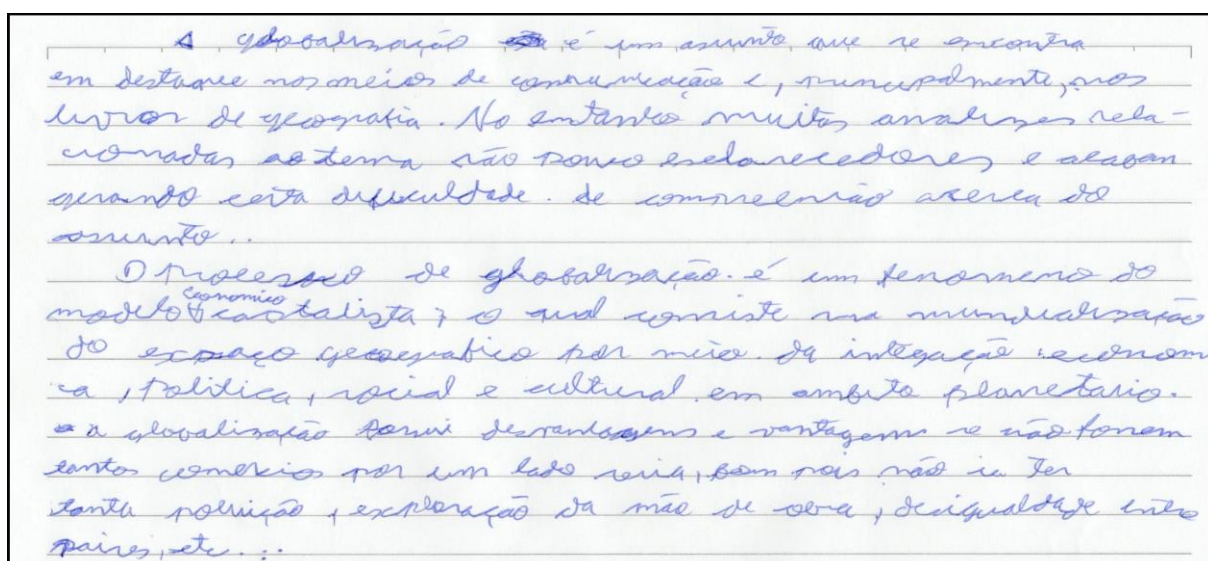 A globalização é um assunto, que se encontra
em destaque nos meios de comunicação e, principalmente, nos
livros de geografia. No entanto muitas analises rela-
cionadas ao tema são pouco esclarecedores e acabam
gerando certa dificuldade. de compreensão acerca do
assunto..
O processo de globalização. é um fenomeno do
modelo economico capitalista, o qual consiste na mundialização
do espaço geografico por meio da integação economi
ca, politica, social e cultural em ambito planetario.
a globalização possui desvantagens e vantagens se não fossem
tantos comercios por um lado seria, bom pois não ia ter
tanta poluição, exploração da mão de obra, desigualdade entre
paises, etc...